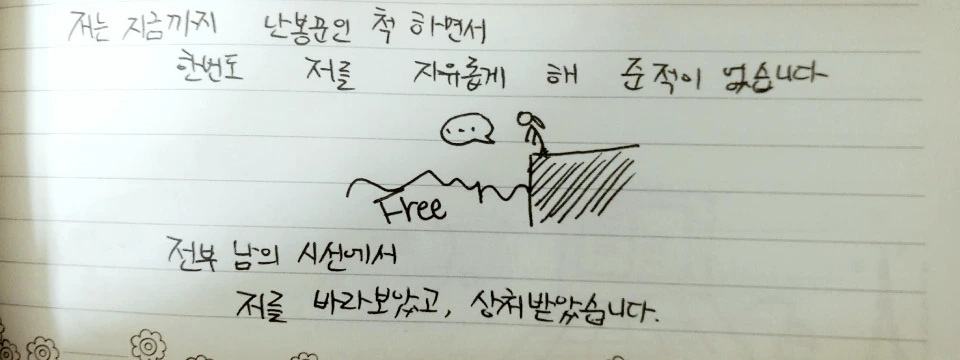 저는 지금까지 난봉꾼인 척 하면서
한번도 저를 자유롭게 해 준적이 없습니다
...
Free
전부 남의 시선에서
저를 바라보았고, 상처받았습니다.